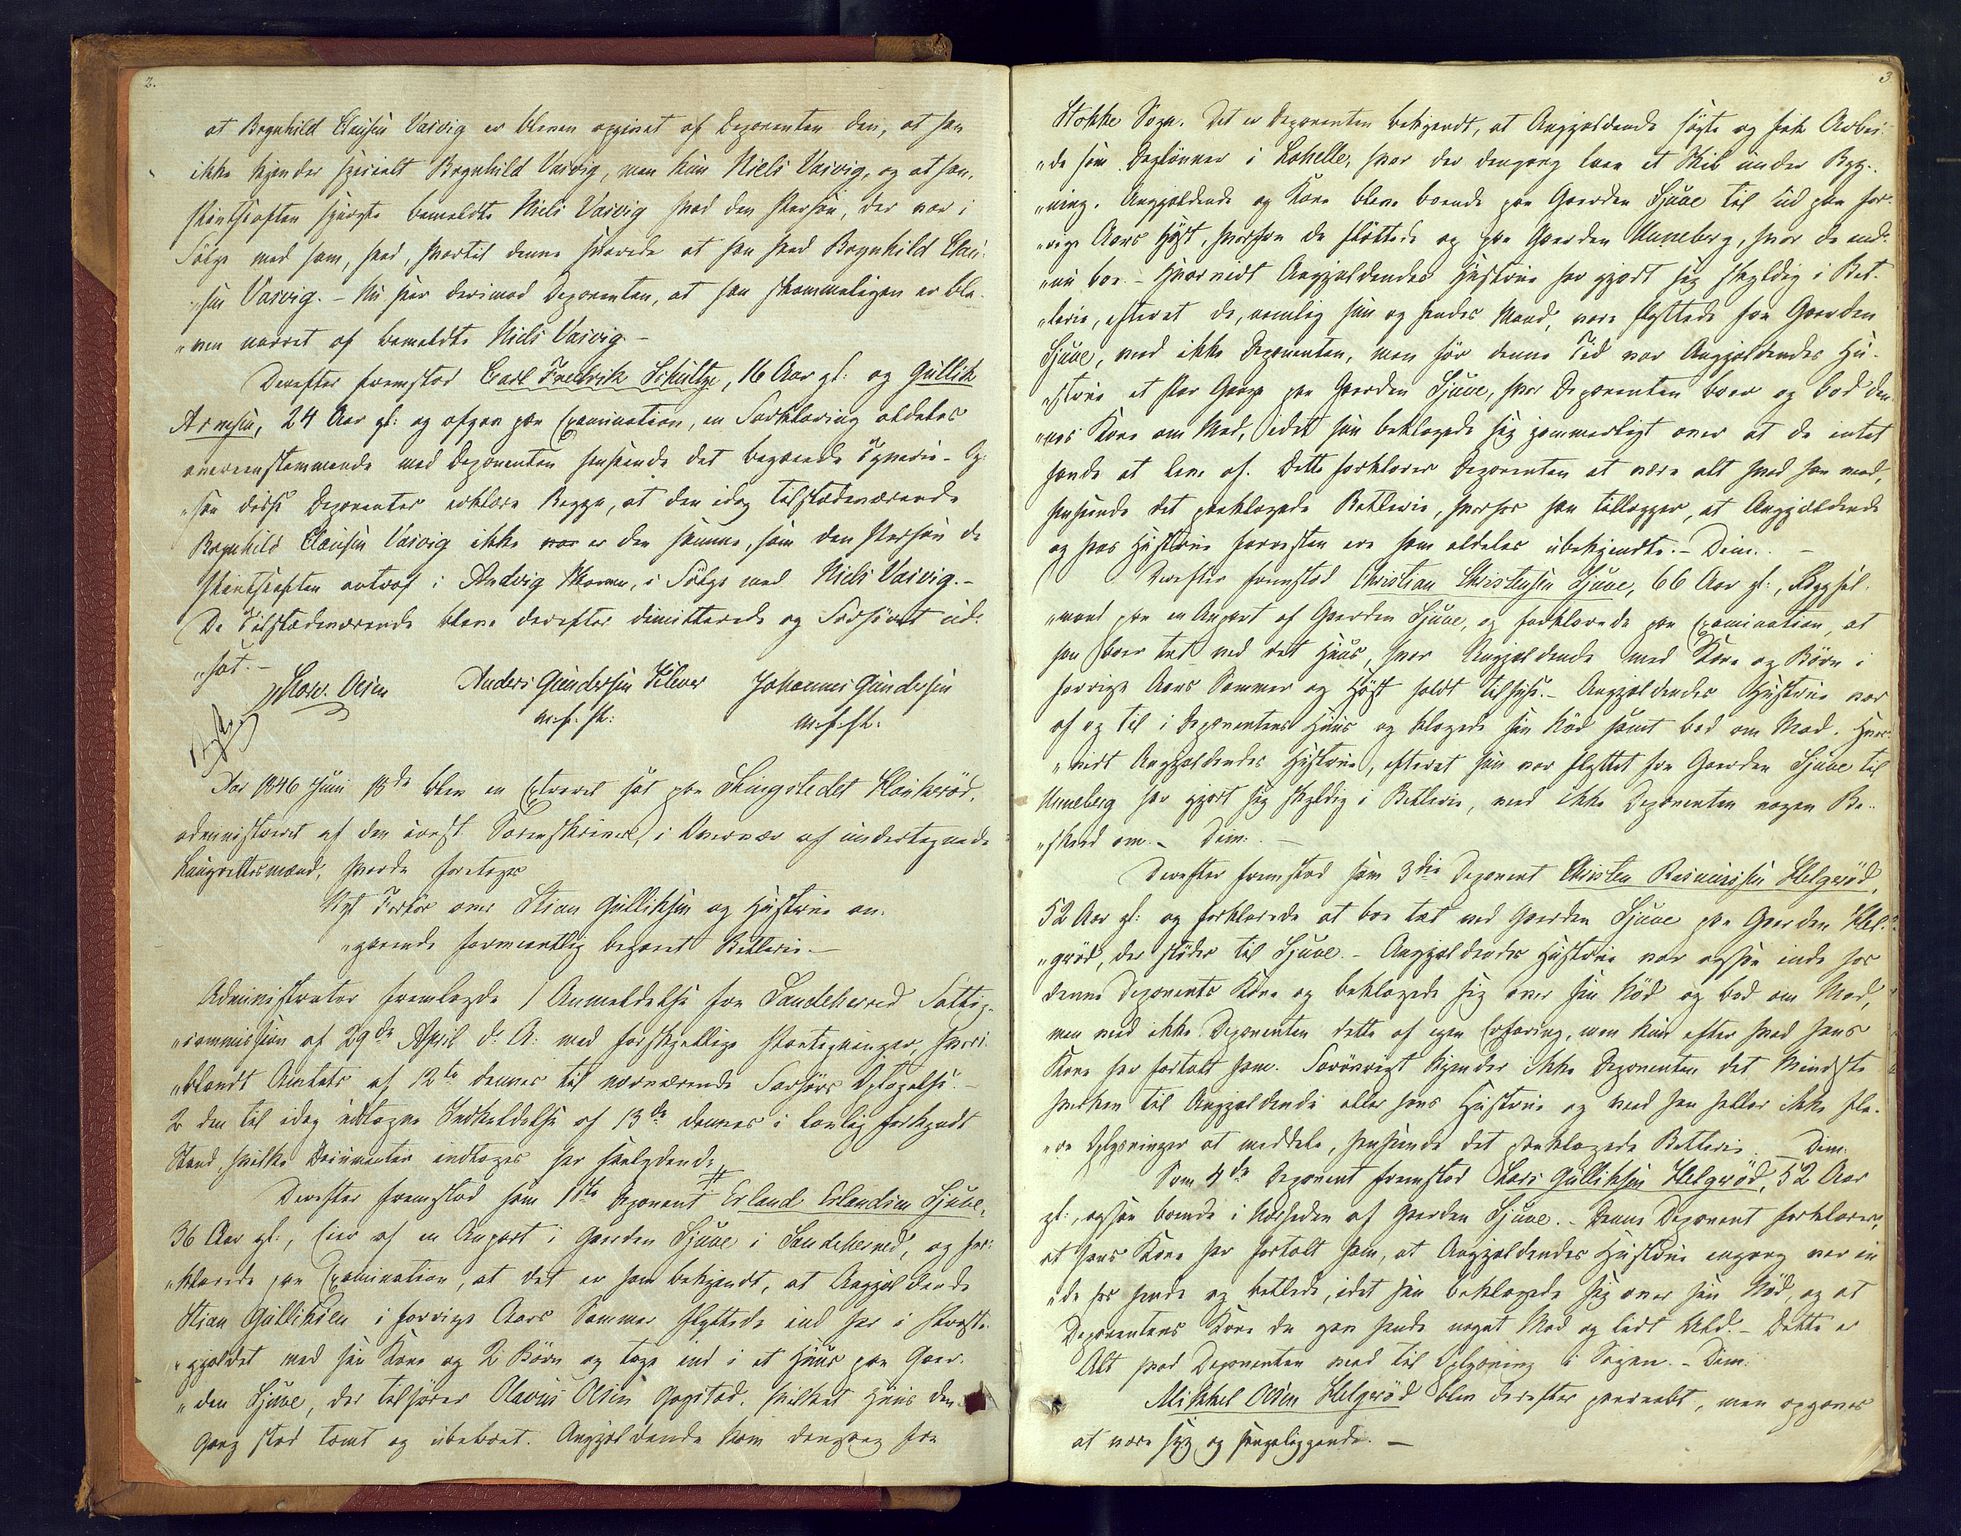 2.
at Bognhild Clausen Vasvig er bleven opgivet af Deponenten den, at han
ikke kjender specielt Bognhild Vasvig, men kun Niels Vasvig, og at han,
Skautsaften spurgte bemeldte Niels Vasvig hvad den Person, der var i
Følge med ham, hed, hvortil denne svarede at han hed Bognhild Clau-
„sen Vasvig. – Nu seer derimod Deponenten, at han skammeligen er ble-
„ven narret af bemeldte Niels Vasvig. –
Derefter fremstod Carl Fredrik Schultze, 16 Aar gl: og Gullik
Arnesen, 24 Aar gl: og afgav paa Examination, en Forklaring aldeles
overeensstemmende med Deponenten henseende det begaaede Tyverie. Og-
„saa disse Deponenter erklære Begge, at den idag tilstædeværende
Bognhild Clausen Vasvig ikke var er den samme, som den Person de
Skautsaften antraf i Andvig Skoven, i Følge med Niels Vasvig. –
De Tilstædeværende bleve derefter dimitterede og Forhøret ud-
„sat. –
Anders Gundersen Klever Johannes Gundersen
m. f. P. m. f. P.
Aar 1846 Juni 18de blev en Extraret sat paa Thingstedet Haukerød,
administreret af den const. Sorenskriver, i Overvær af undertegnede
Laugrettesmænd, hvorda foretoges
Nyt Forhør over Stian Gulliksen og Hustrue an-
„gaaende formeentlig begaaet Betlerie. –
Administrator fremlagde 1 Anmeldelse fra Sandeherred Fattig-
„commission af 29de April d. A. med forskjellige Paategninger, hvori-
„blandt Amtets af 12te dennes til nærværende Forhørs Optagelse. –
2 den til idag udtagne Indkaldelse af 13de dennes i lovlig forkyndt
Stand, hvilke Documenter indtages her saalydende
Derefter fremstod som 1ste Deponent Erland Erlandsen Sjuve,
36 Aar gl:, Eier af en Anpart i Gaarden Sjuve i Sandeherred, og for-
„klarede paa Examination, at det er ham bekjendt, at Angjældende
Stian Gulliksen i forrige Aars Sommer flyttede ind her i Præste-
„gjældet med sin Kone og 2 Børn og toge ind i et Huus paa Gaar-
„den Sjuve, der tilhører Olavus Olsen Gogstad, hvilket Huus den-
gang stod tomt og ubeboet. Angjældende kom dengang fra
3
Stokke Sogn. Det er Deponenten bekjendt, at Angjældende søgte og fik Arbei-
„de som Daglønner i Lahelle, hvor der dengang laae et Skib under Byg-
„ning. Angjældende og Kone bleve boende paa Gaarden Sjuve til ud paa for-
„rige Aars Høst, hvorfra de flyttede og paa Gaarden Unneberg, hvor de end-
„nu boe. – Hvorvidt Angjældendes Hustrue har gjort sig skyldig i Bet-
„lerie, efterat de, nemlig hun og hendes Mand, vare flyttede fra Gaarden
Sjuve, veed ikke Deponenten, men før denne Tid var Angjældendes Hu-
„strue et Par Gange paa Gaarden Sjuve, hvor Deponenten boer og bad den-
„nes Kone om Mad, idet hun beklagede sig jammerligt over at de intet
havde at leve af. Dette forklarer Deponenten at være alt hvad han veed,
henseende det paaklagede Betlerie, hvorhos han tillægger, at Angjældende
og hans Hustrue forresten ere ham aldeles ubekjendte. – Dim. –
Derefter fremstod Christian Christensen Sjuve, 66 Aar gl:, Bygsel-
„mand paa en Anpart af Gaarden Sjuve, og forklarede paa Examination, at
han boer tæt ved det Huus, hvor Angjældende med Kone og Børn i
forrige Aars Sommer og Høst holdt tilhuse. – Angjældendes Hustrue var
af og til i Deponentens Huus og klagede sin Nød samt bad om Mad. Hvor-
„vidt Angjældendes Hustrue, efterat hun var flyttet fra Gaarden Sjuve til
Unneberg har gjort sig skyldig i Betlerie, veed ikke Deponenten nogen Be-
„skeed om. – Dim. –
Derefter fremstod som 3die Deponent Christen Rasmussen Helgerød,
52 Aar gl: og forklarede at boe tæt ved Gaarden Sjuve paa Gaarden Hel-
„gerød, der støder til Sjuve. – Angjældendes Hustrue var ogsaa inde hos
denne Deponents Kone og beklagede sig over sin Nød og bad om Mad,
men veed ikke Deponenten dette af egen Erfaring, men kun efter hvad hans
Kone har fortalt ham. Forøvrigt kjender ikke Deponenten det Mindste
hverken til Angjældende eller hans Hustrue og veed han heller ikke fle-
„re Oplysninger at meddele, henseende det paaklagede Betlerie. – Dim:
Som 4de Deponent fremstod Lars Gulliksen Helgerød, 52 Aar
gl:, ogsaa boende i Nærheden af Gaarden Sjuve. – Denne Deponent forklarer,
at hans Kone har fortalt ham, at Angjældendes Hustrue engang var in-
„de hos hende og betlede, idet hun beklagede sig over sin Nød, og at
Deponentens Kone da gav hende noget Mad og lidt Uld. – Dette er
Alt hvad Deponenten veed til Oplysning i Sagen. – Dim:
Mikkel Olsen Helgerød blev derefter paaraabt, men opgaves
at være syg og sengeliggende. –